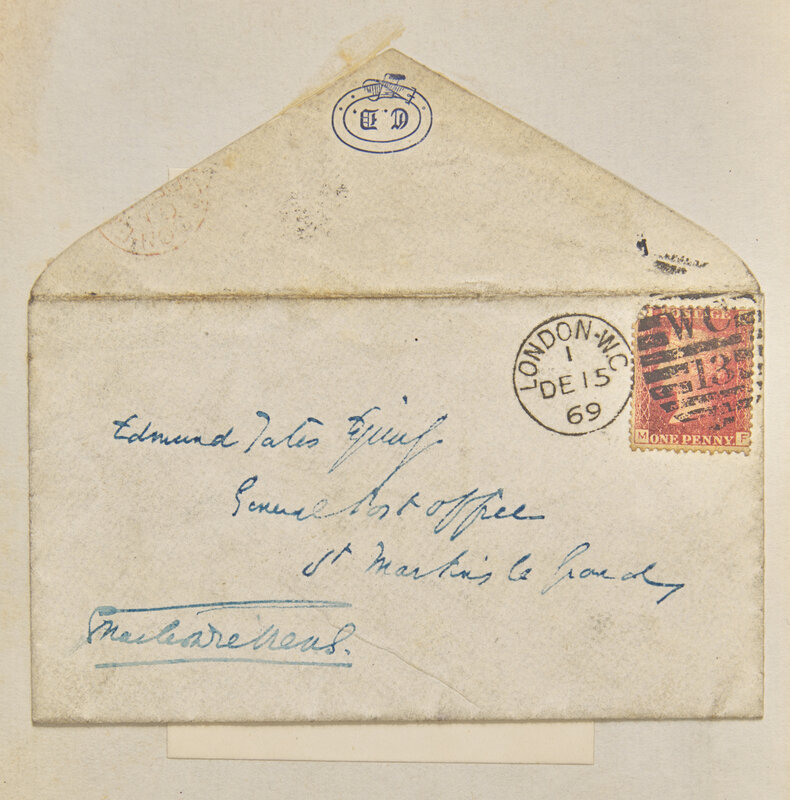 C.D.
LONDON·W.C
1
DE 15
69
WC
13
ONE PENNY
M F
Edmund Yates Esquire
General Post Office
St Martin's le Grand
Charles Dickens.